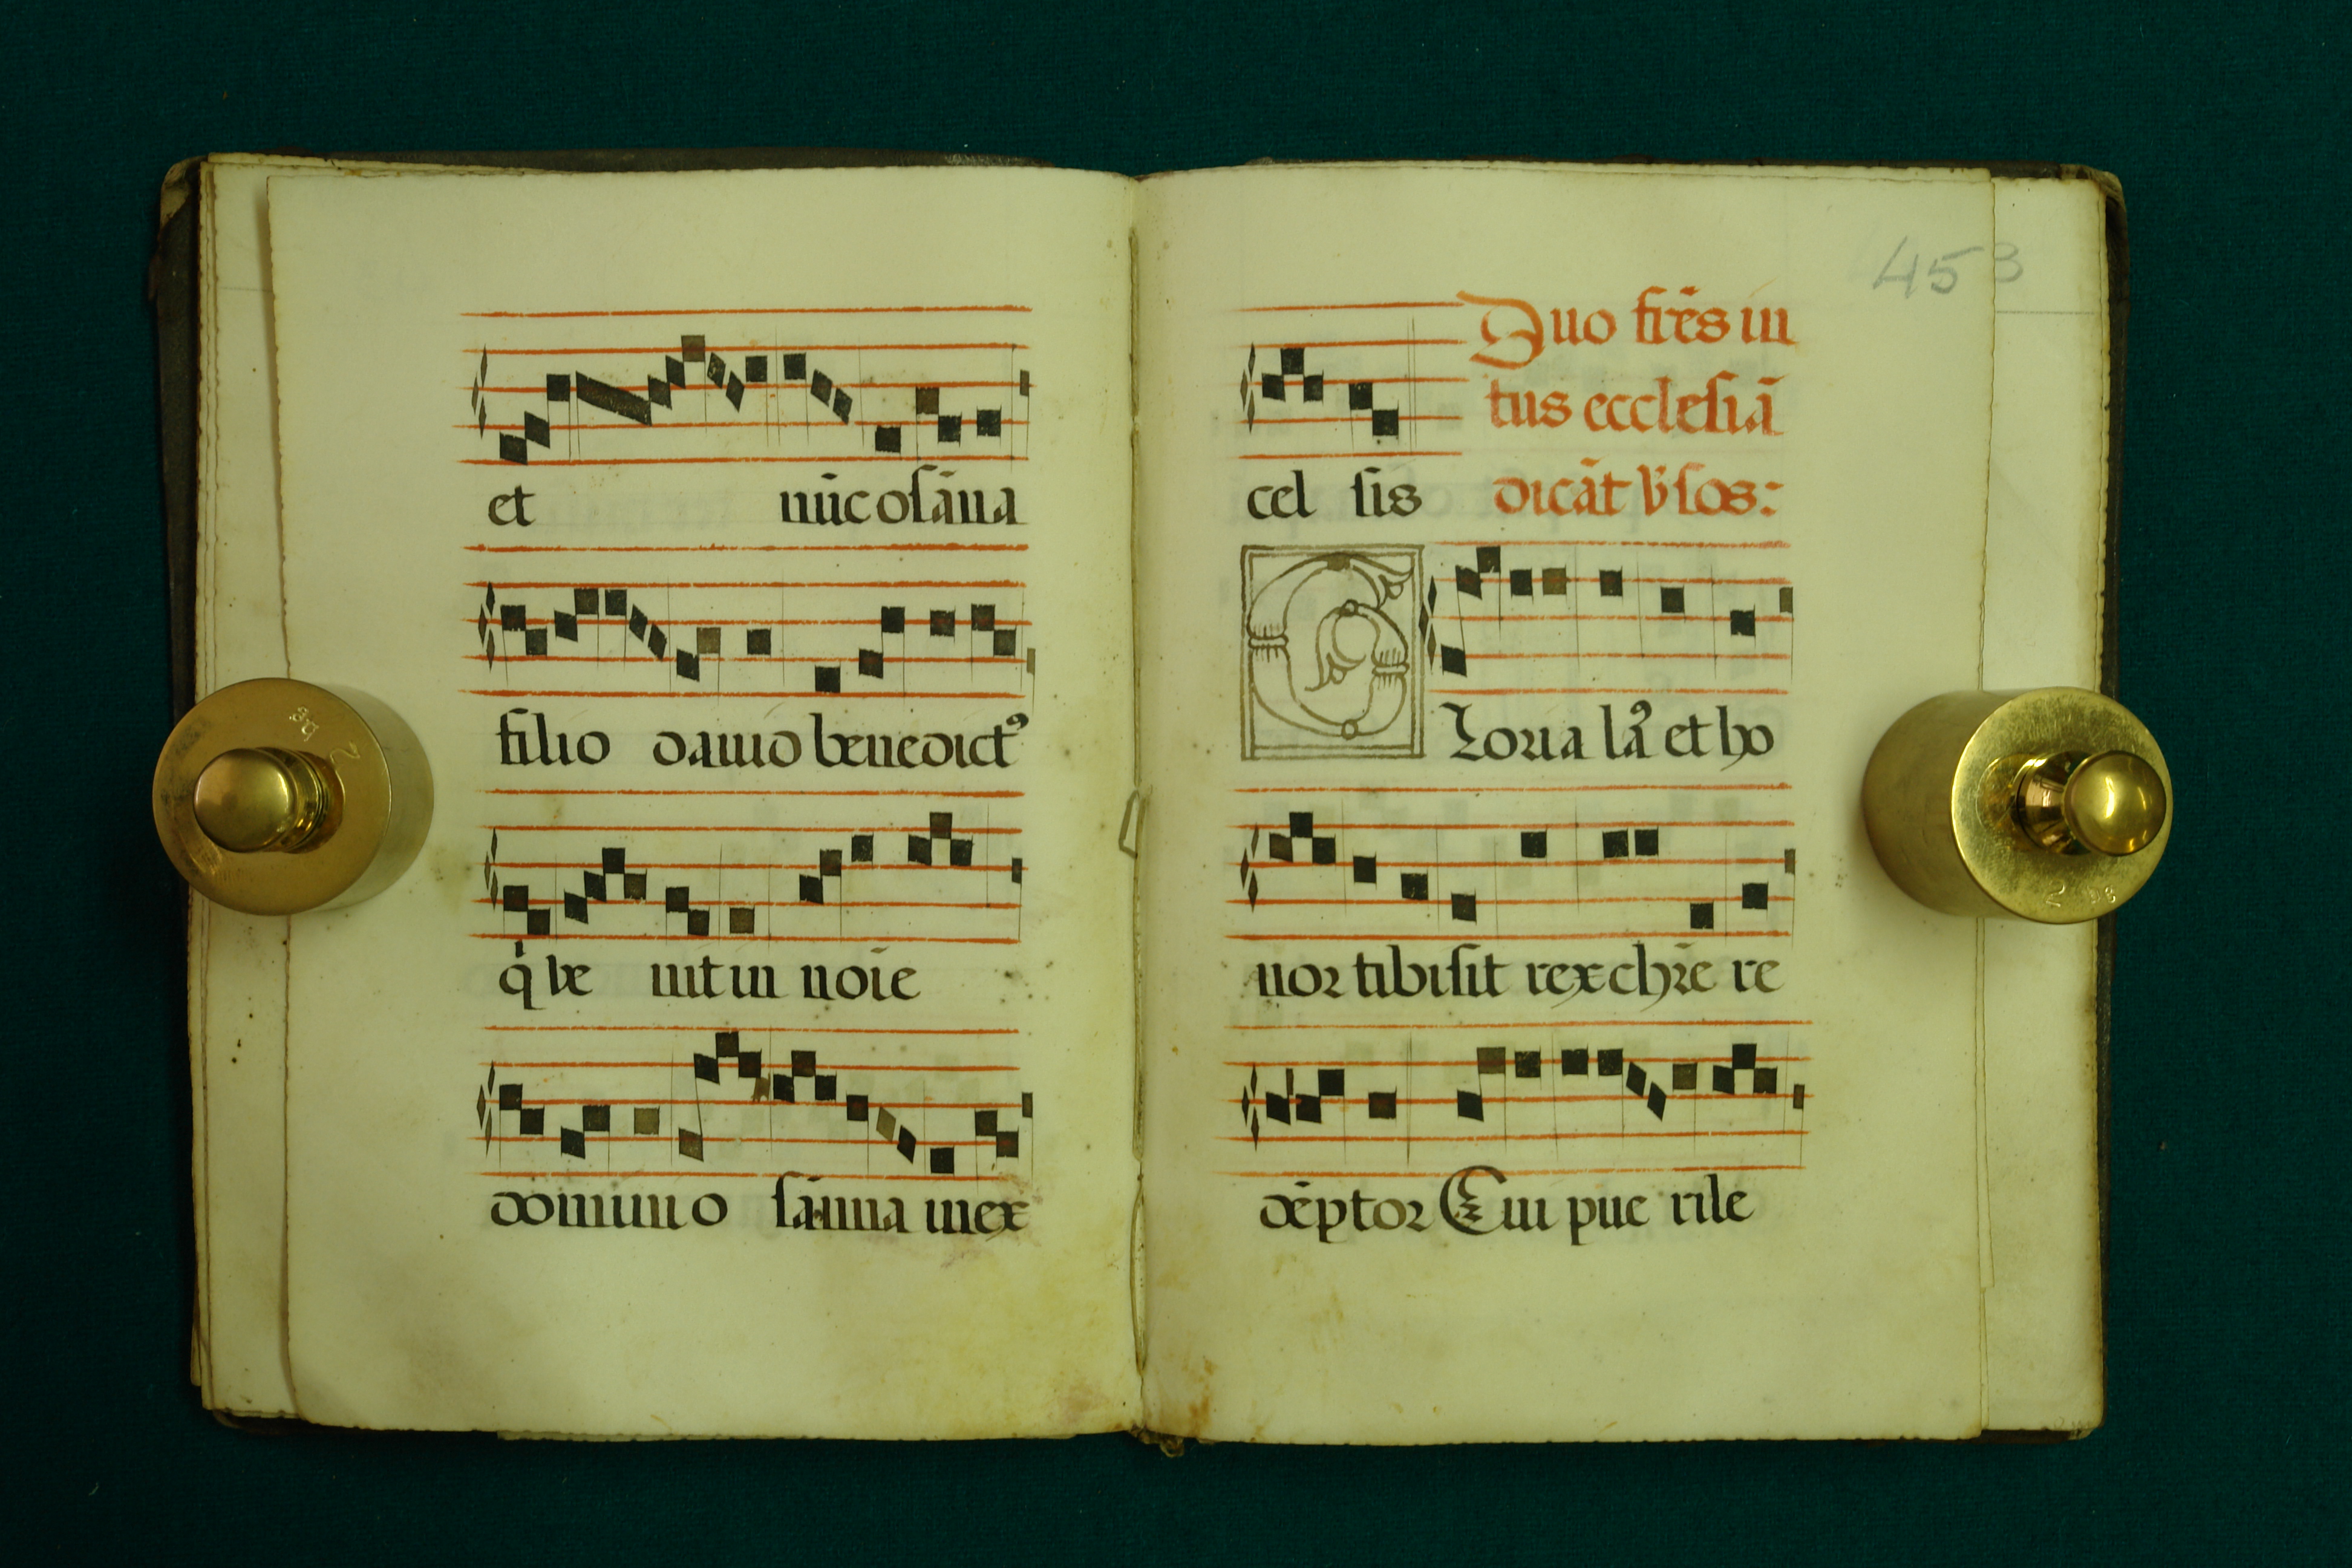 et nuc osāna
filio dauid benedictꝰ
q̇ ve nit in noīe
domini o sanna in ex
453
Duo fr̄es in
tus ecclesiā
cel sis dicāt v̓sos:
Gloria laꝰ et ho
nor tibi sit rex chr̄e re
dēptor Cui pue rile